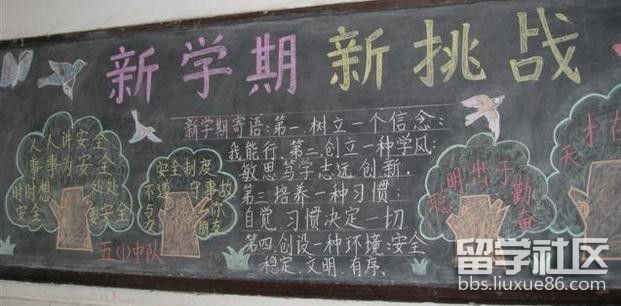 新学期 新挑战
人人讲安全
事事为安全
时时想安全
处处要安全
安全制度
不遵守
事故
五(1)中队
新学期寄语:第一.树立一个信念:
我能行.第二.创立一种学风:
敏思笃学志远.创新.
第三.培养一种习惯:
自觉.习惯决定一切
第四.创设一种环境:安全
稳定.文明.有序.
聪明出于勤奋
天才在
留学社区
bbs.liuxue86.com